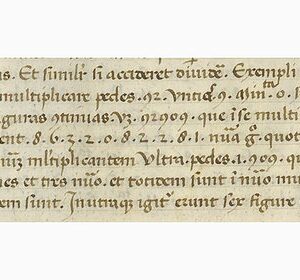 us. Et simili si accideret divide. Exempli
multiplicare pedes . 92 . untia . 9 . 4in . 0 .
guras 9tinuas vz. 92909. que i se multi
ent . 8. 6. 3. 2. 0. 8. 2. 2. 8. 1. nua g. quot
mltiplicantem ultra . pedes . 1. 909. qu
nes et tres nuo. et totidem sunt i nuo mu
tem sunt. In utraque igit erunt sex figure